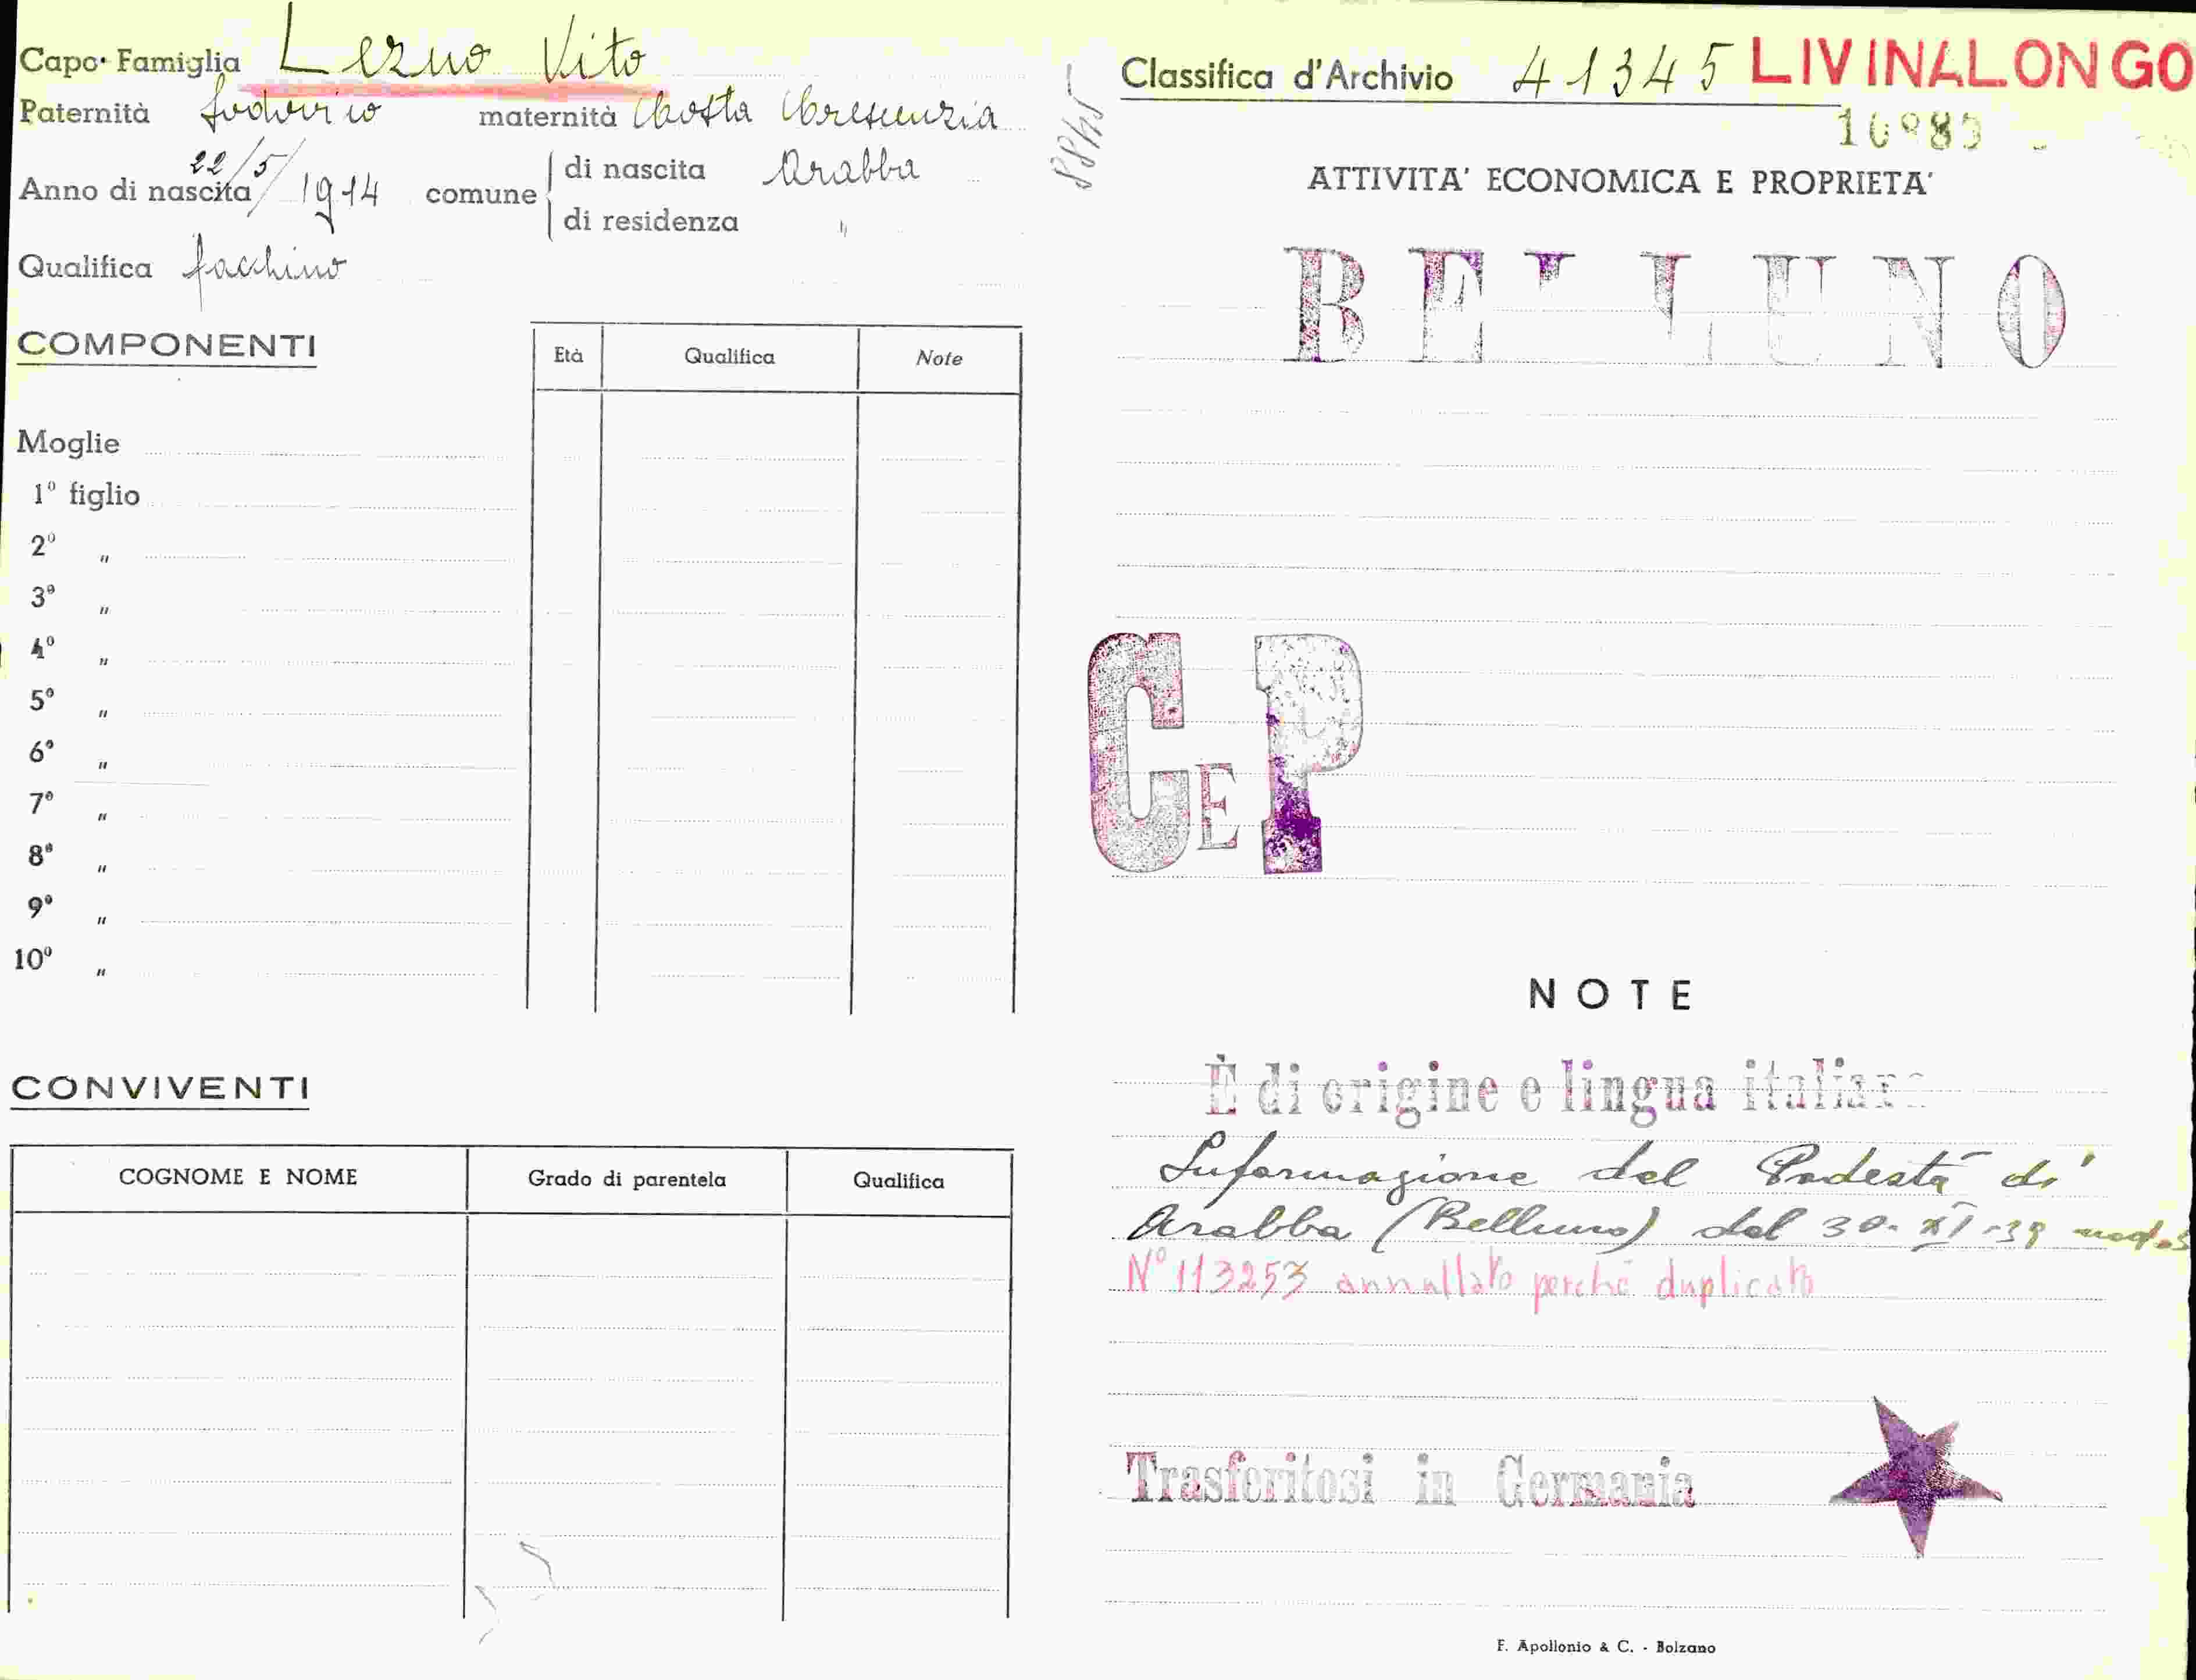 Capo Famiglia Lezuo Vito
Paternità Lodovico maternità Costa Crescenzia
Anno di nascita 22/5/1914 comune
di nascita Arabba
di residenza "
Qualifica facchino
COMPONENTI
Età Qualifica Note
Moglie
1º figlio
2º "
3º "
4º "
5º "
6º "
7º "
8º "
9º "
10º "
CONVIVENTI
COGNOME E NOME Grado di parentela Qualifica
Classifica d'Archivio 41345 LIVINALONGO
ATTIVITA' ECONOMICA E PROPRIETA'
BELLUNO
C E P
NOTE
È di origine e lingua italiana
Informazione del Podestà di
Arabba (Belluno) del 30-XI-39
Nº 113253 annullato perché duplicato
Trasferitosi in Germania
F. Apollonio & C. - Bolzano